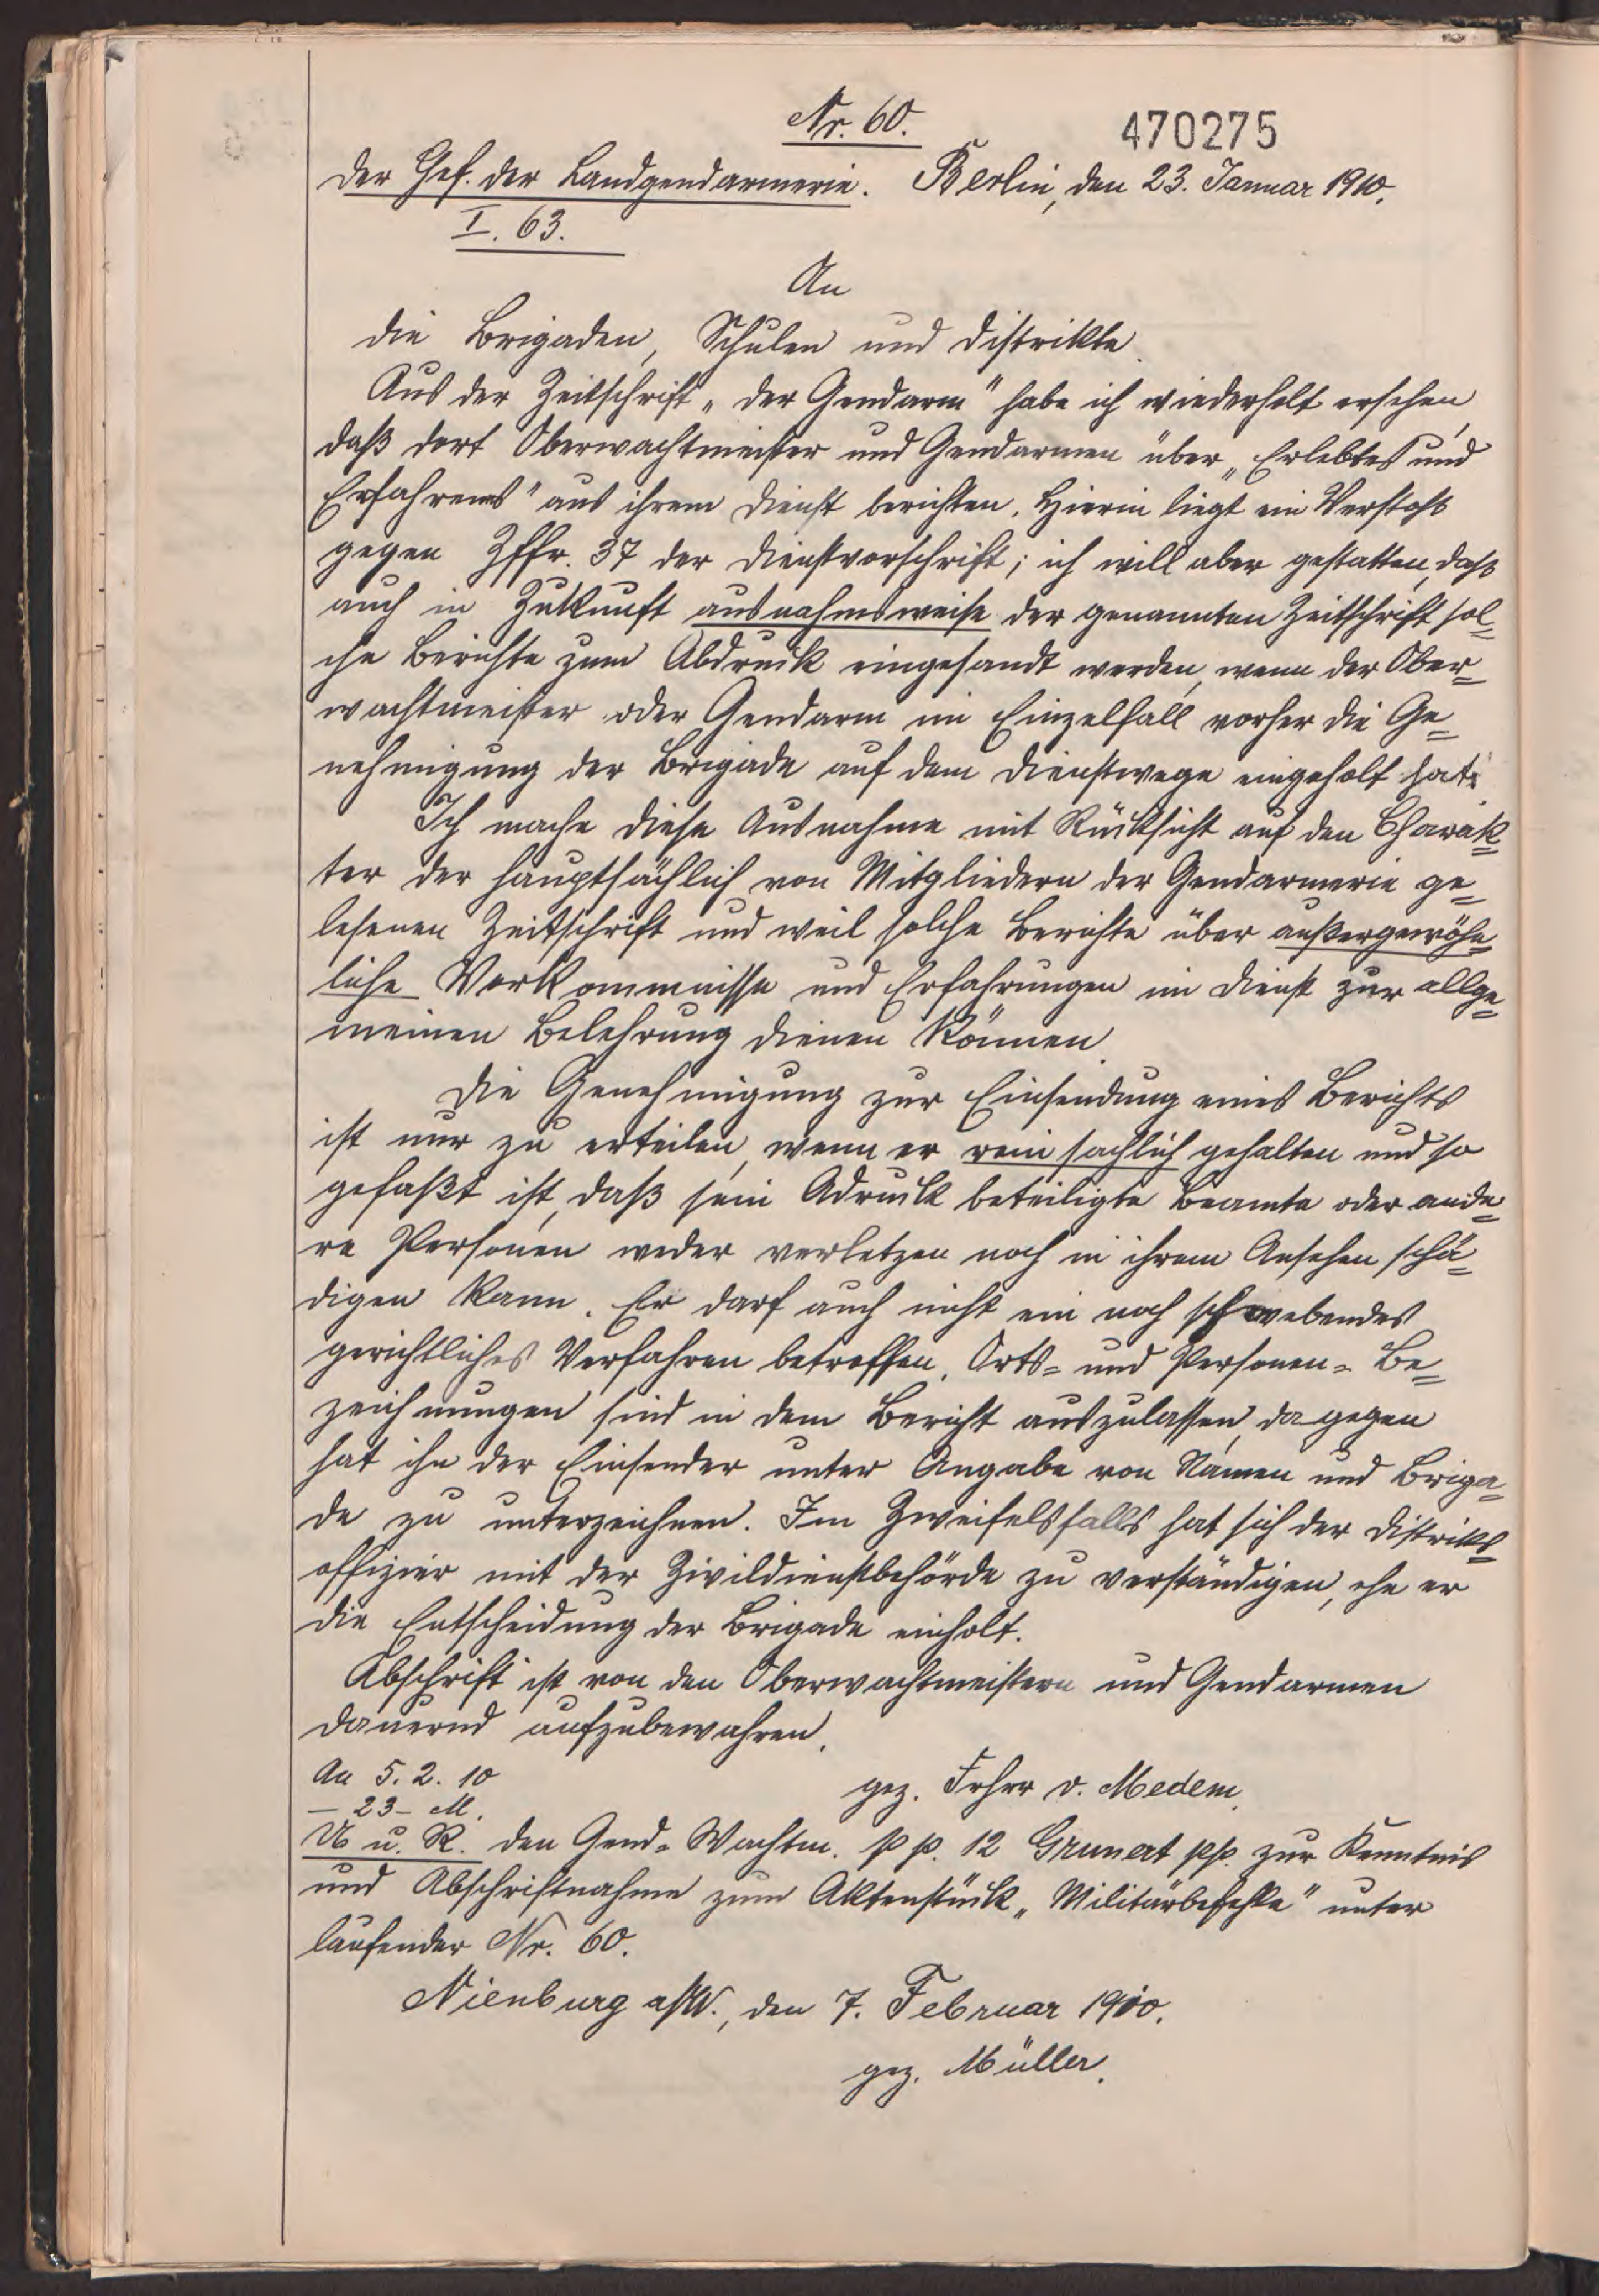 Nr. 60.
470275
Der Chef. der Landgendarmerie. Berlin, den 23. Januar 1910.
I. 63.
An
die Brigaden, Schulen und Distrikte.
Aus der Zeitschrift „Der Gendarm" habe ich wiederholt ersehen,
daß dort Oberwachtmeister und Gendarmen über „Erlebtes und
Erfahrenes" aus ihrem Dienst berichten. Hierin liegt ein Verstoß
gegen Zffr. 37 der Dienstvorschrift; ich will aber gestatten, daß
auch in Zukunft ausnahmsweise der genannten Zeitschrift sol=
che Berichte zum Abdruck eingesandt werden, wenn der Ober=
wachtmeister oder Gendarm im Einzelfall vorher die Ge=
nehmigung der Brigade auf dem Dienstwege eingeholt hat.
Ich mache diese Ausnahme mit Rücksicht auf den Charak=
ter der hauptsächlich von Mitgliedern der Gendarmerie ge=
lesenen Zeitschrift und weil solche Berichte über außergewöhn=
liche Vorkommnisse und Erfahrungen im Dienst zur allge=
meinen Belehrung dienen können.
Die Genehmigung zur Einsendung eines Berichts
ist nur zu erteilen, wenn er rein sachlich gehalten und so
gefaßt ist, daß sein Adruck beteiligte Beamte oder ande=
re Personen weder verletzen noch in ihrem Ansehen schä=
digen kann. Er darf auch nicht ein noch schwebendes
gerichtliches Verfahren betreffen. Orts= und Personen= Be=
zeichnungen sind in dem Bericht auszulassen, dagegen
hat ihn der Einsender unter Angabe von Namen und Briga=
de zu unterzeichnen. Im Zweifelsfalls hat sich der Distrikts=
offizier mit der Zivildienstbehörde zu verständigen, ehe er
die Entscheidung der Brigade einholt.
Abschrift ist von den Oberwachtmeistern und Gendarmen
dauernd aufzubewahren.
An 5. 2. 10
gez. Frhrr v. Medem.
— 23 - M.
U u. R. den Gend.=Wachtm. p p. 12 Grunert pp. zur Kenntnis
und Abschriftnahme zum Aktenstück „Militärbefehle" unter
laufender Nr. 60.
Nienburg a/W., den 7. Februar 1910.
gez. Müller.